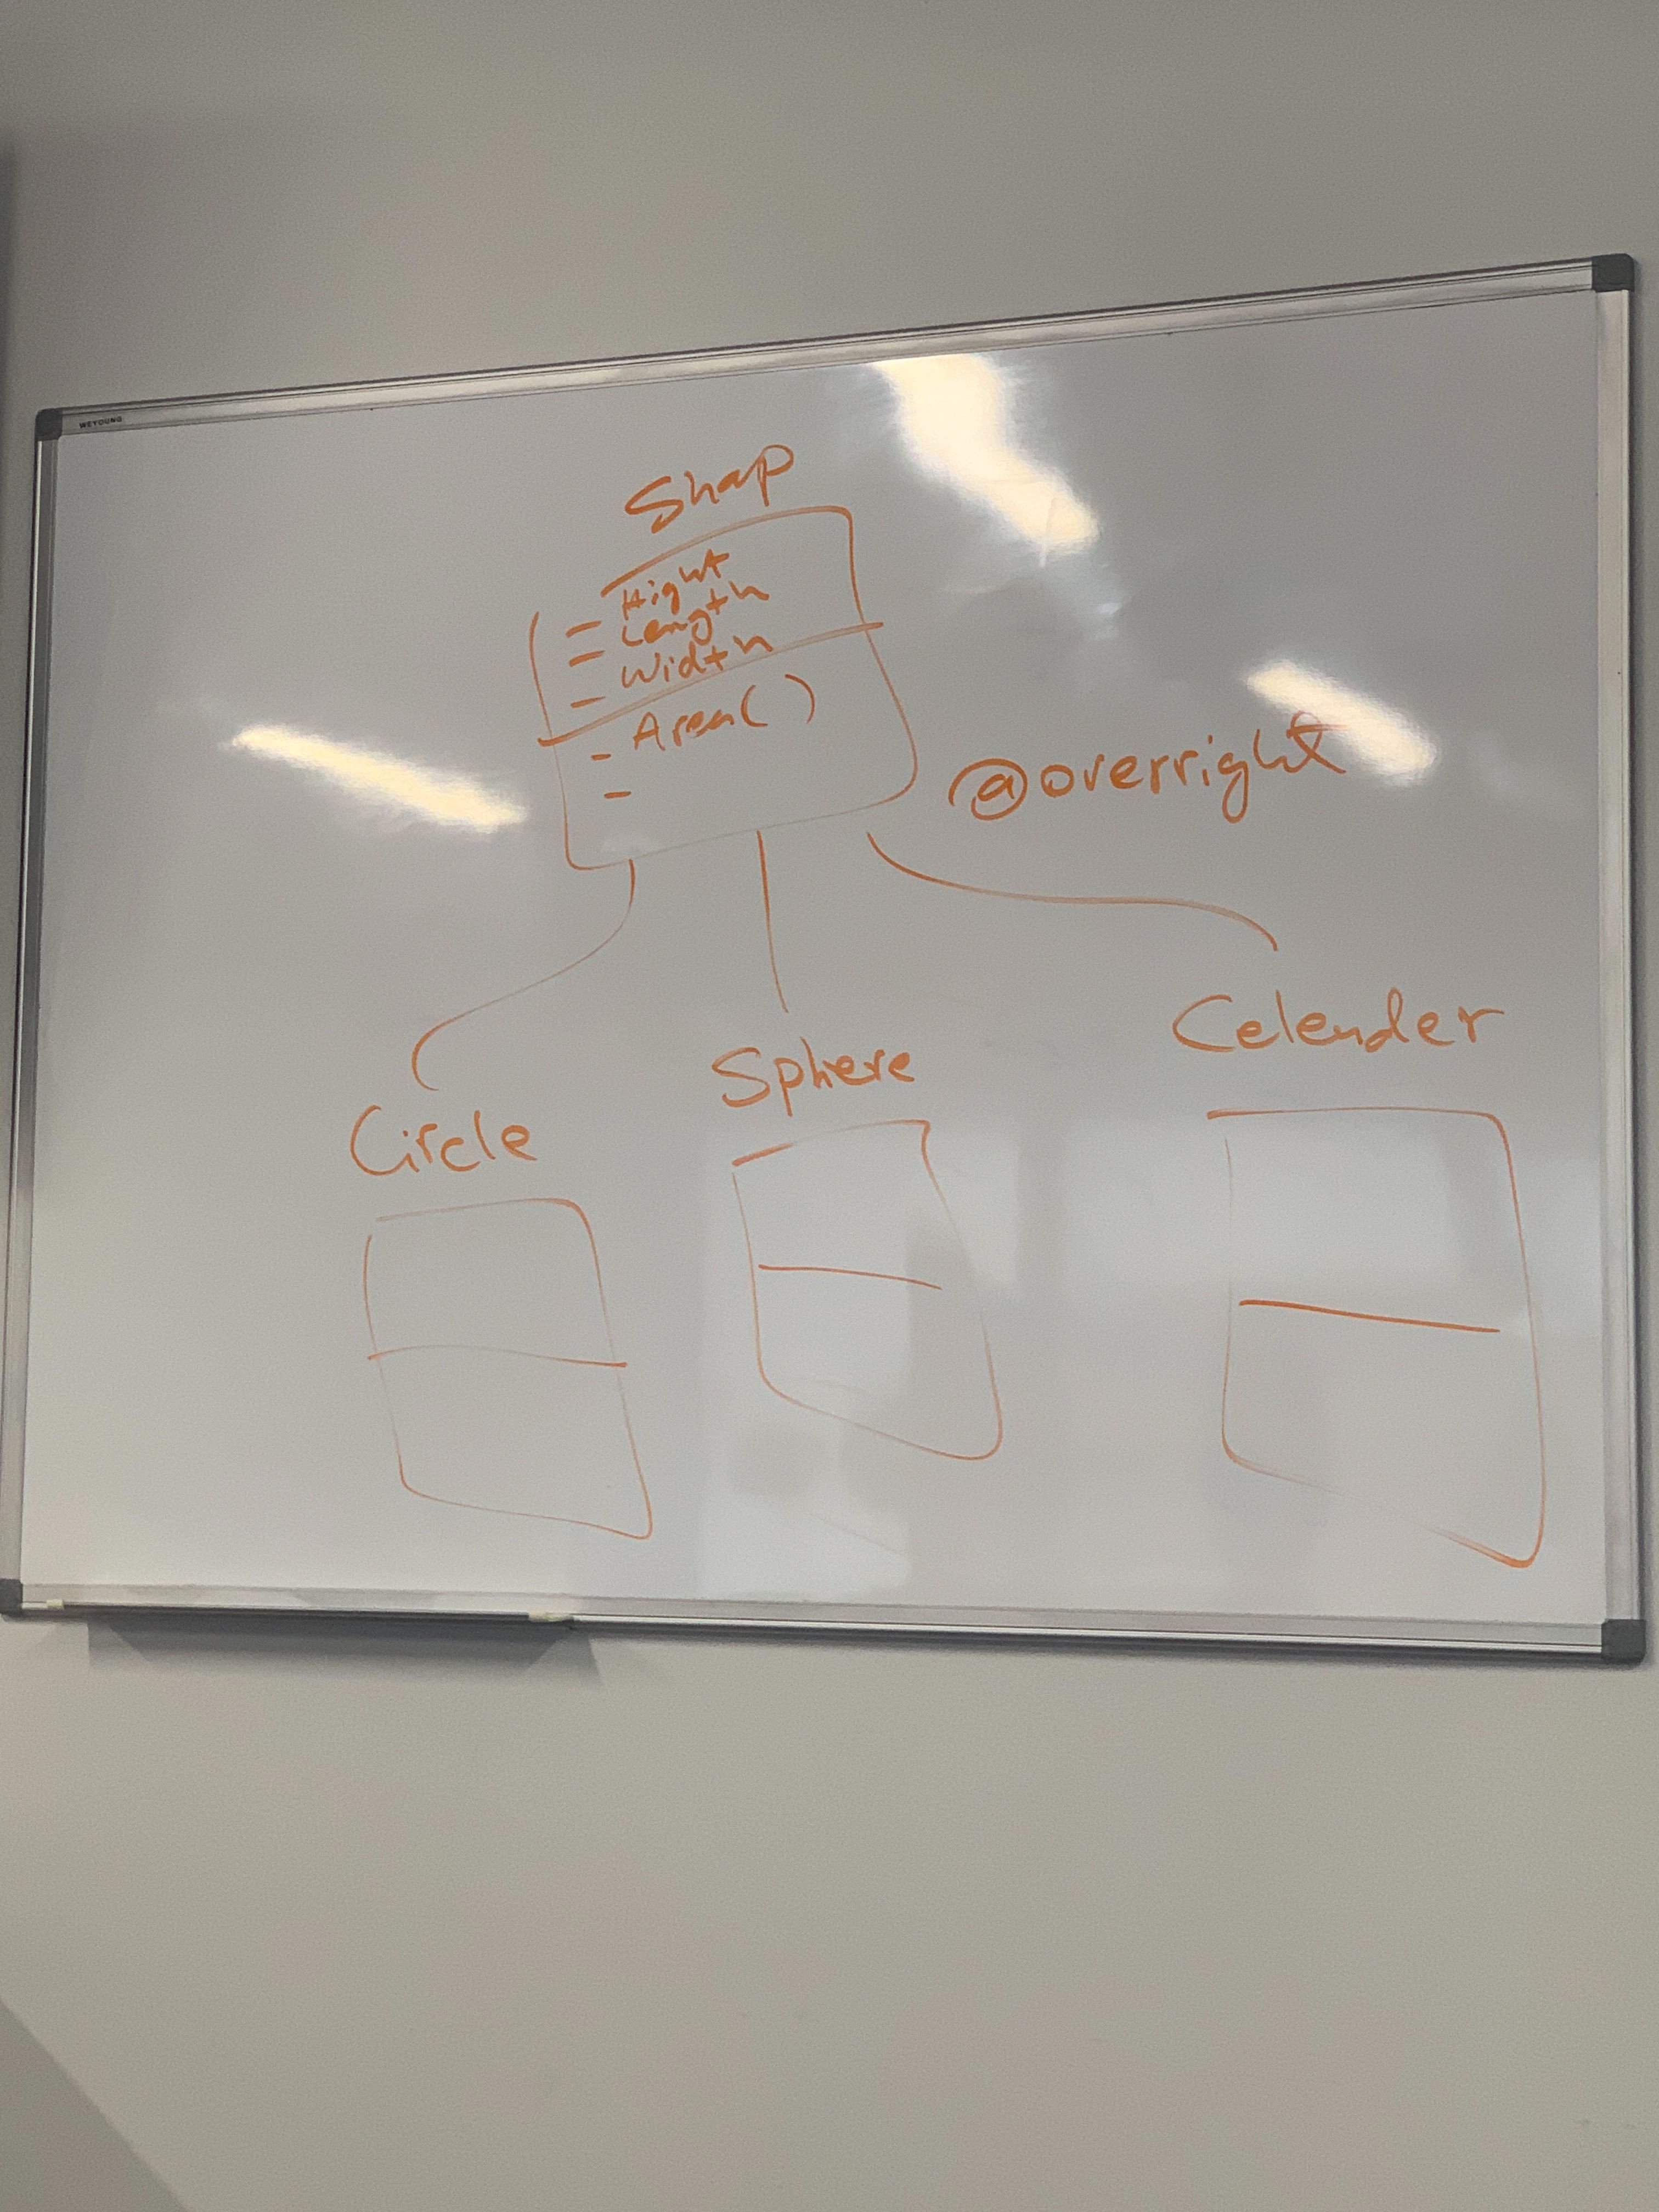 WEYOUNG
Shap
- Hight
- Length
- Width
- Area( )
-
@overright
Circle
Sphere
Celender